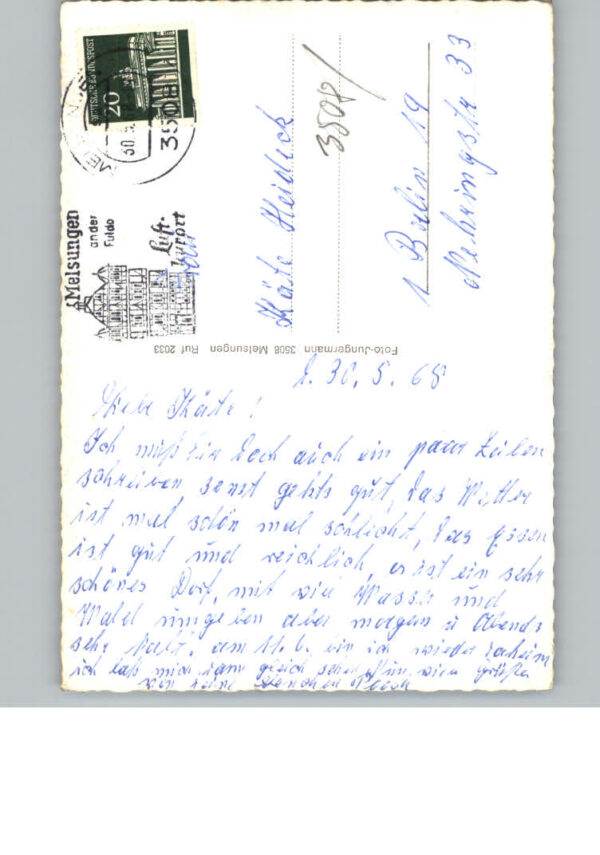 DEUTSCHE BUNDESPOST
20
3508
30.5.
Melsungen
an der
Fulda
Luft-
kurort
Käte Heideck
3508
1 Berlin 19
Nehringstr 33
Foto-Jungermann 3508 Melsungen Ruf 2033
d. 30. 5. 68
Liebe Käte!
Ich muß Dir doch auch ein paar Zeilen
schreiben sonst gehts gut, das Wetter
ist mal schön mal schlecht, das Essen
ist gut und reichlich, es ist ein sehr
schönes Dorf, mit viel Wasser und
Wald umgeben aber morgen u Abends
sehr kalt. am 11.6. bin ich wieder daheim
ich laß mich dann gleich sehen viele Grüße
von